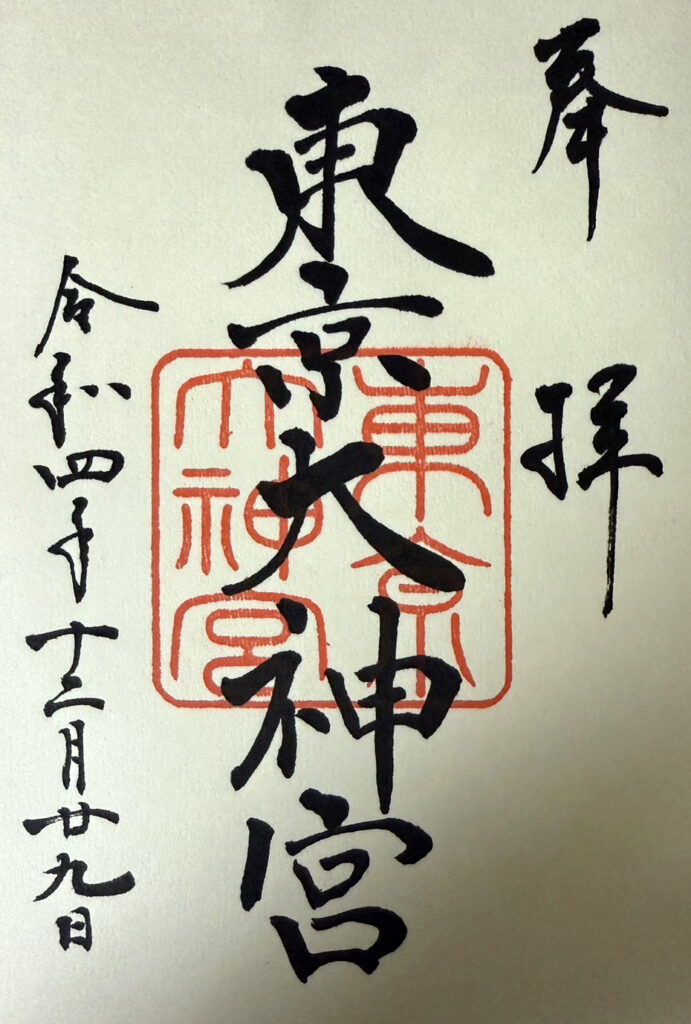 奉拝
東京大神宮
東京
大神宮
令和四年十二月廿九日